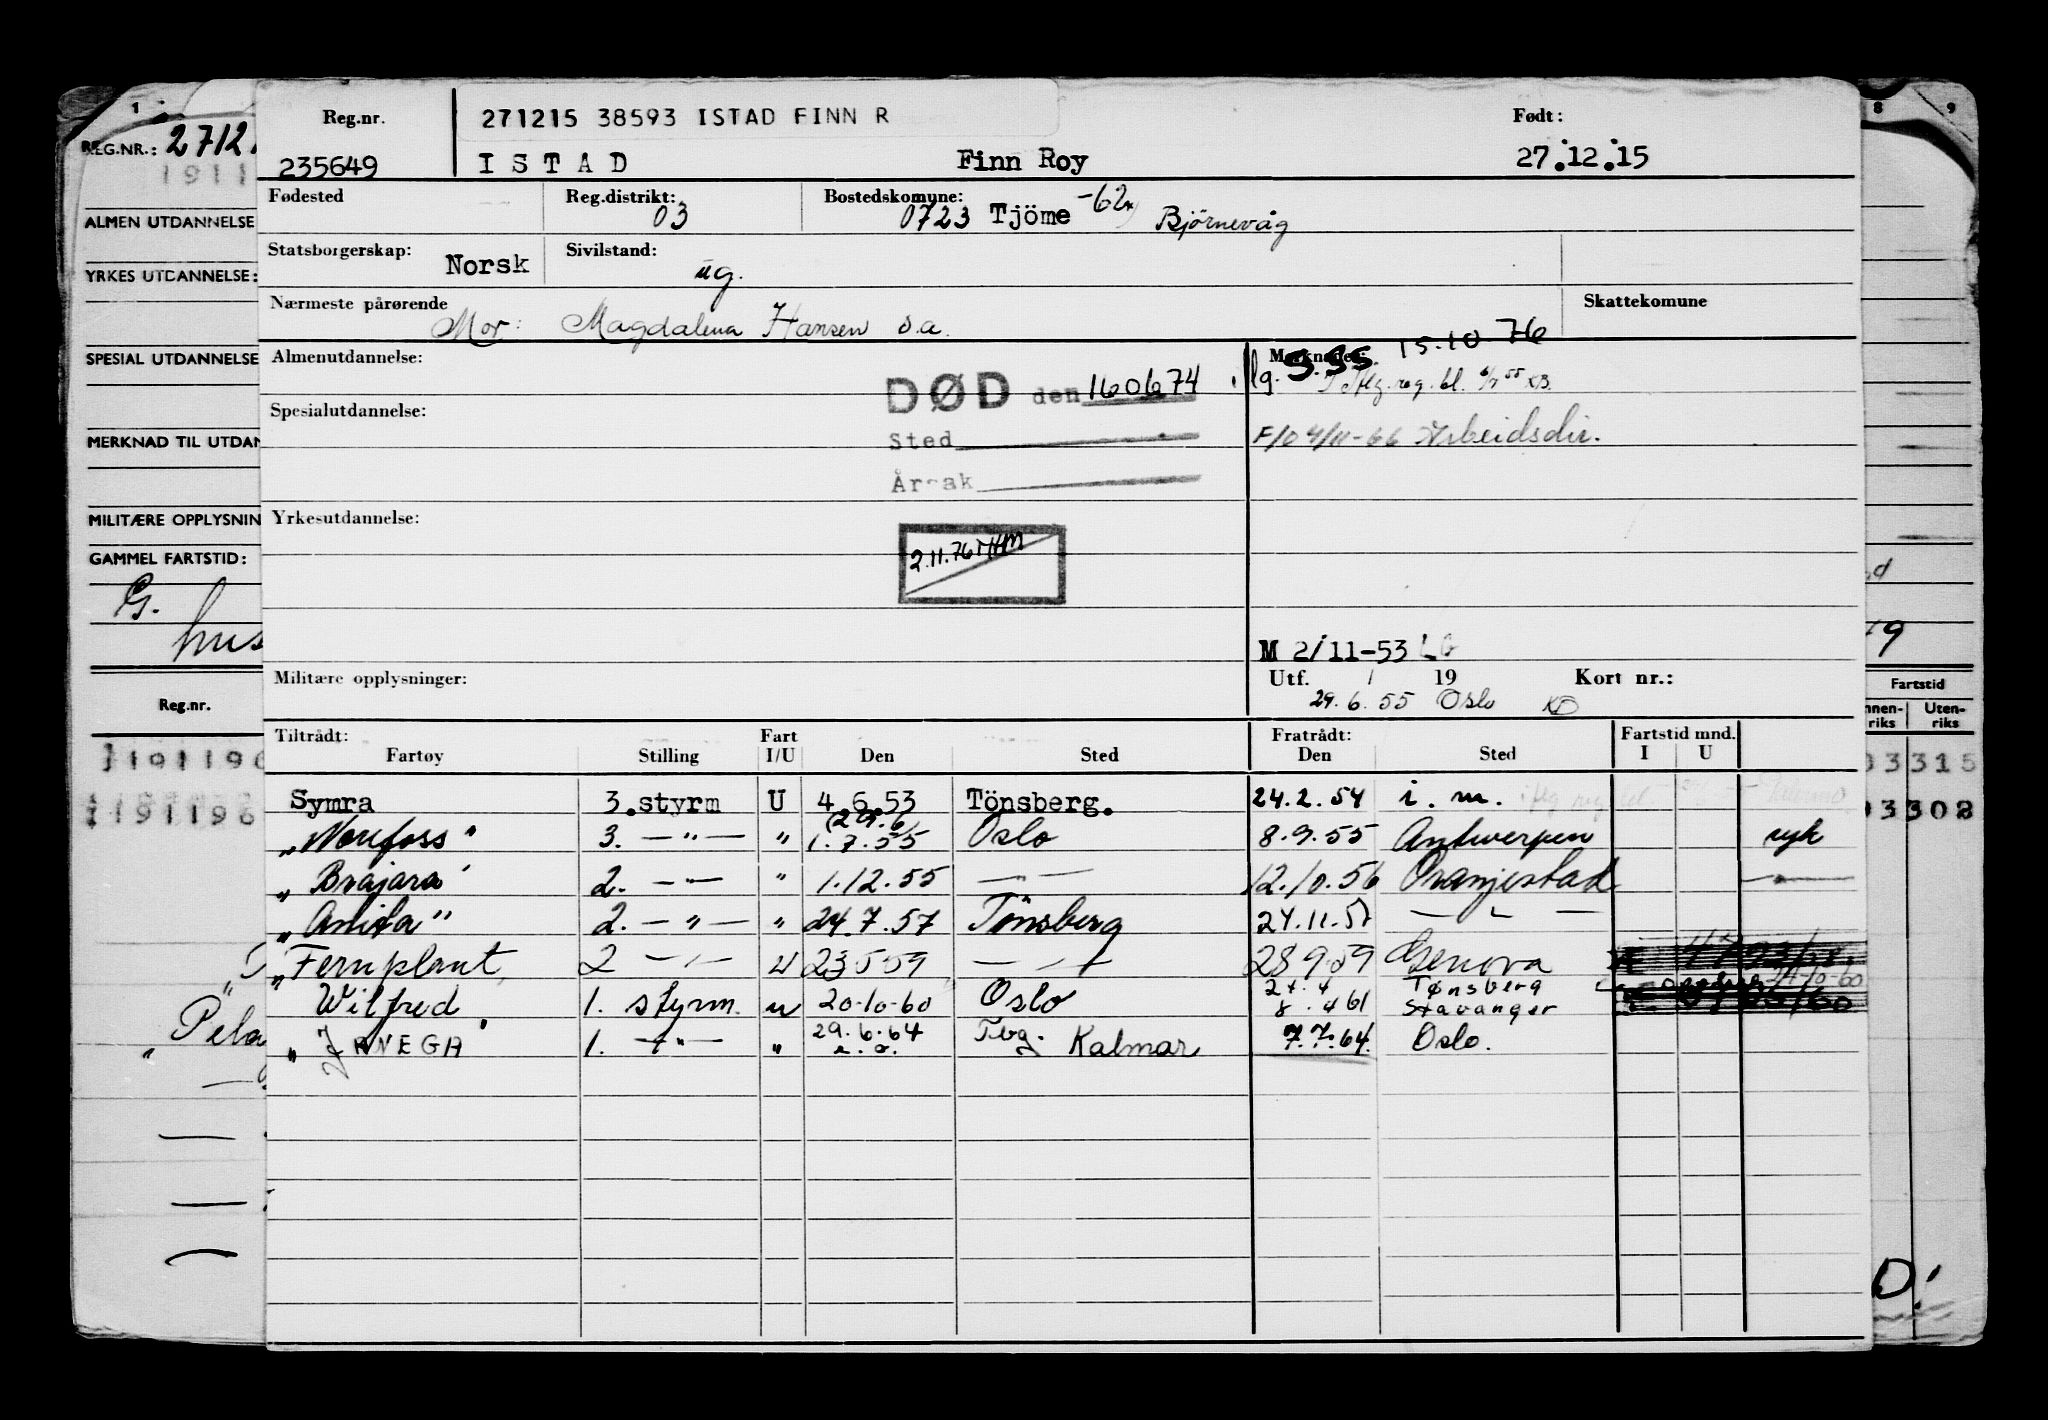 Reg.nr. 271215 38593 ISTAD FINN R Født:
235649 ISTAD Finn Roy 27.12.15
Fødested Reg.distrikt: 03 Bostedskommune: 0723 Tjöme -62 Bjørnevåg
Statsborgerskap: Norsk Sivilstand: ug.
Nærmeste pårørende Mor: Magdalena Hansen s.a. Skattekomune
Almenutdannelse: Merknader: 15.10.76
DØD den 160674 lg. S.SS
Spesialutdannelse:
Sted F/O 4/11-66 Arbeidsdir.
Årsak
Yrkesutdannelse:
2.11.76
M 2/11-53
Militære opplysninger: Utf. / 19 Kort nr.:
29.6.55 Oslo KB
Tiltrådt: Fart Fratrådt: Fartstid mnd.
Fartøy Stilling I/U Den Sted Den Sted I U
Symra 3.styrm U 4.6.53 Tönsberg. 24.2.54 i. m.
(29.6)
3. — " — " 1.7.55 Oslo 8.9.55 Antwerpen syk
„Brajara" 2. — " — " 1.12.55 — " — 12.10.56 Oranjestad — " —
„Anita" 2. — " — " 24.7.57 Tönsberg 27.11.57 — " —
„Fernplant" 2 — " — U 23 5 59 — " — 28 9 59 Genova
Wilfred 1. styrm. u 20-10-60 Oslo 24.4 Tønsberg 24-10-60
8.461 Stavanger
„JANEGA" 1. — " — " 29.6.64 Tbg. Kalmar 7.7.64. Oslo.
1
REG.NR.: 2712
1911
ALMEN UTDANNELSE
YRKES UTDANNELSE:
SPESIAL UTDANNELSE
MERKNAD TIL UTDAN
MILITÆRE OPPLYSNIN
GAMMEL FARTSTID:
G.
hus
Reg.nr.
191196
191196
„Pela
8 9
19
Fartstid
nnen-riks Uten-riks
03315
03308
D!